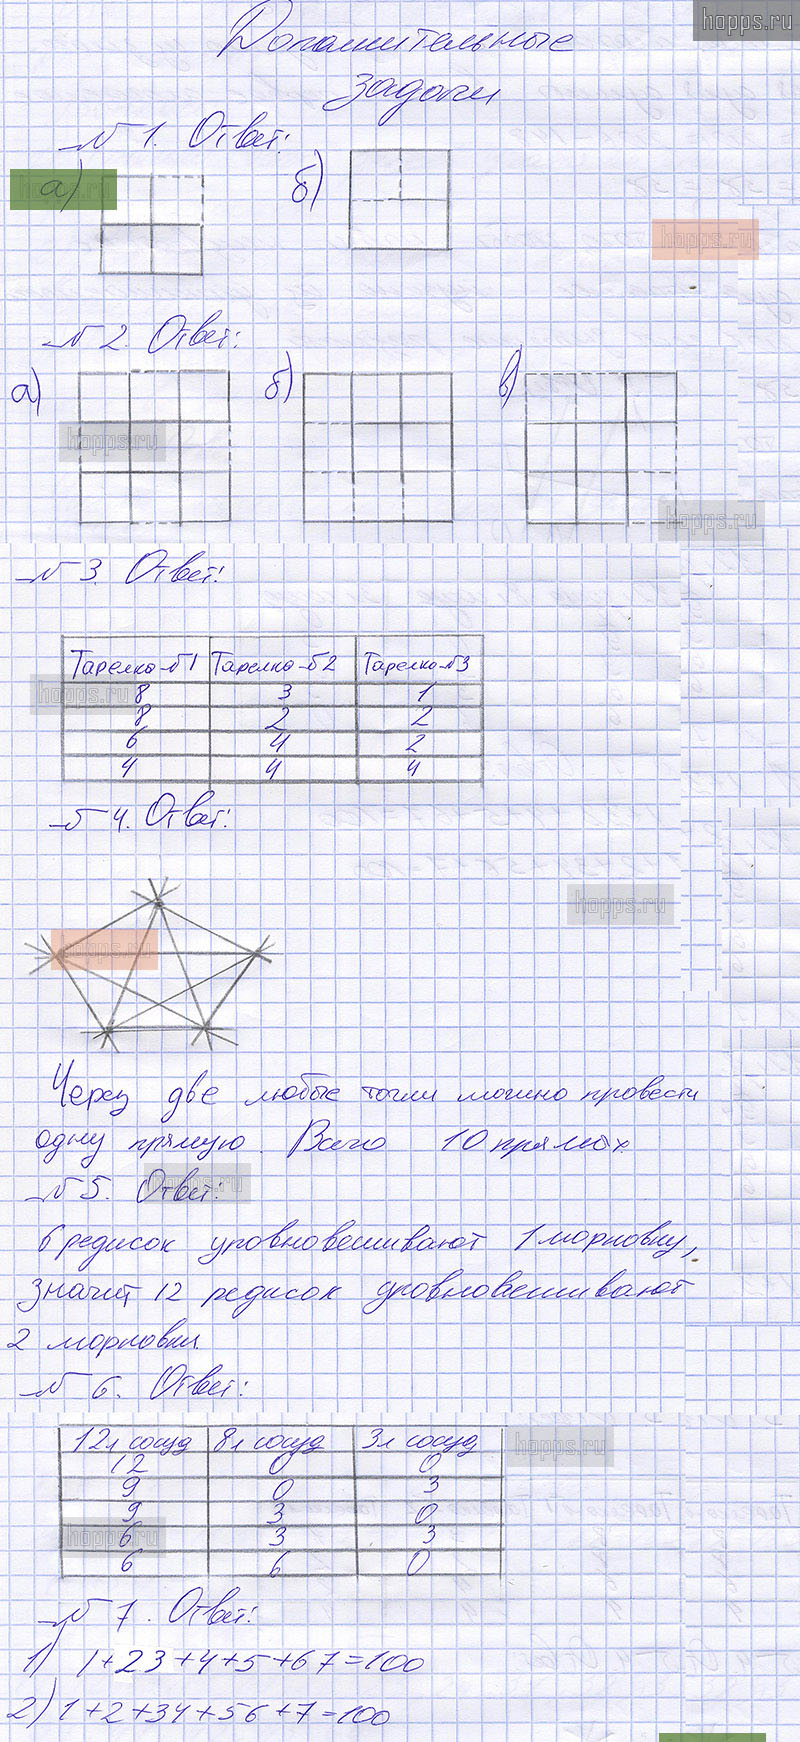 hopps.ru
Дополнительные
задачи
№ 1. Ответ:
а) б)
hopps.ru
№ 2. Ответ:
а) б) в)
hopps.ru
hopps.ru
№ 3. Ответ:
Тарелка №1 Тарелка №2 Тарелка №3
hopps.ru
8 3 1
8 2 2
6 4 2
4 4 4
№ 4. Ответ:
hopps.ru
hopps.ru
Через две любые точки можно провести
одну прямую. Всего 10 прямых.
hopps.ru
№ 5. Ответ:
6 редисок уравновешивают 1 морковку,
значит 12 редисок уравновешивают
2 морковки.
№ 6. Ответ:
12л сосуд 8л сосуд 3л сосуд
hopps.ru
12 0 0
9 0 3
9 3 0
hopps.ru
6 3 3
6 6 0
№ 7. Ответ:
1) 1+23+4+5+67=100
2) 1+2+34+56+7=100